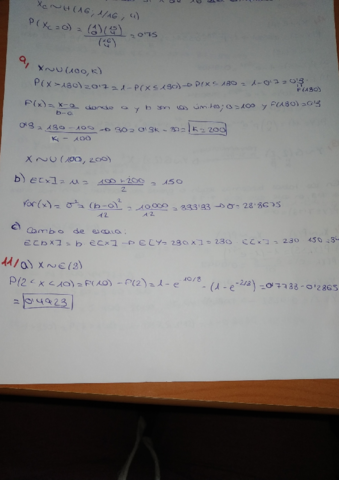 X_C ~ H(16, 1/16, 4)
P(X_C=0) = (1 0)(15 4) / (16 4) = 0'75
9)
X~U(100,K)
P(X>130)=0'7=1-P(X≤130)→P(X≤130)=1-0'7=0'3
F(130)
F(x)= x-a / b-a donde a y b son los límites, a=100 y F(130)=0'3
0'3 = 130-100 / K-100 → 30=0'3K-30= K=200
X~U(100,200)
b) E[X]=μ= 100+200 / 2 = 150
Var(X)=σ²= (b-a)² / 12 = 10.000 / 12 = 833'33→σ=28'8675
c) Cambio de escala.
E[bX]=b E[X]→E[Y=230X]=230 E[X]=230·150=34
11) a) X~E(8)
P(2<X<10)=F(10)-F(2)=1-e^-10/8-(1-e^-2/8)=0'7738-0'2865
= 0'4923